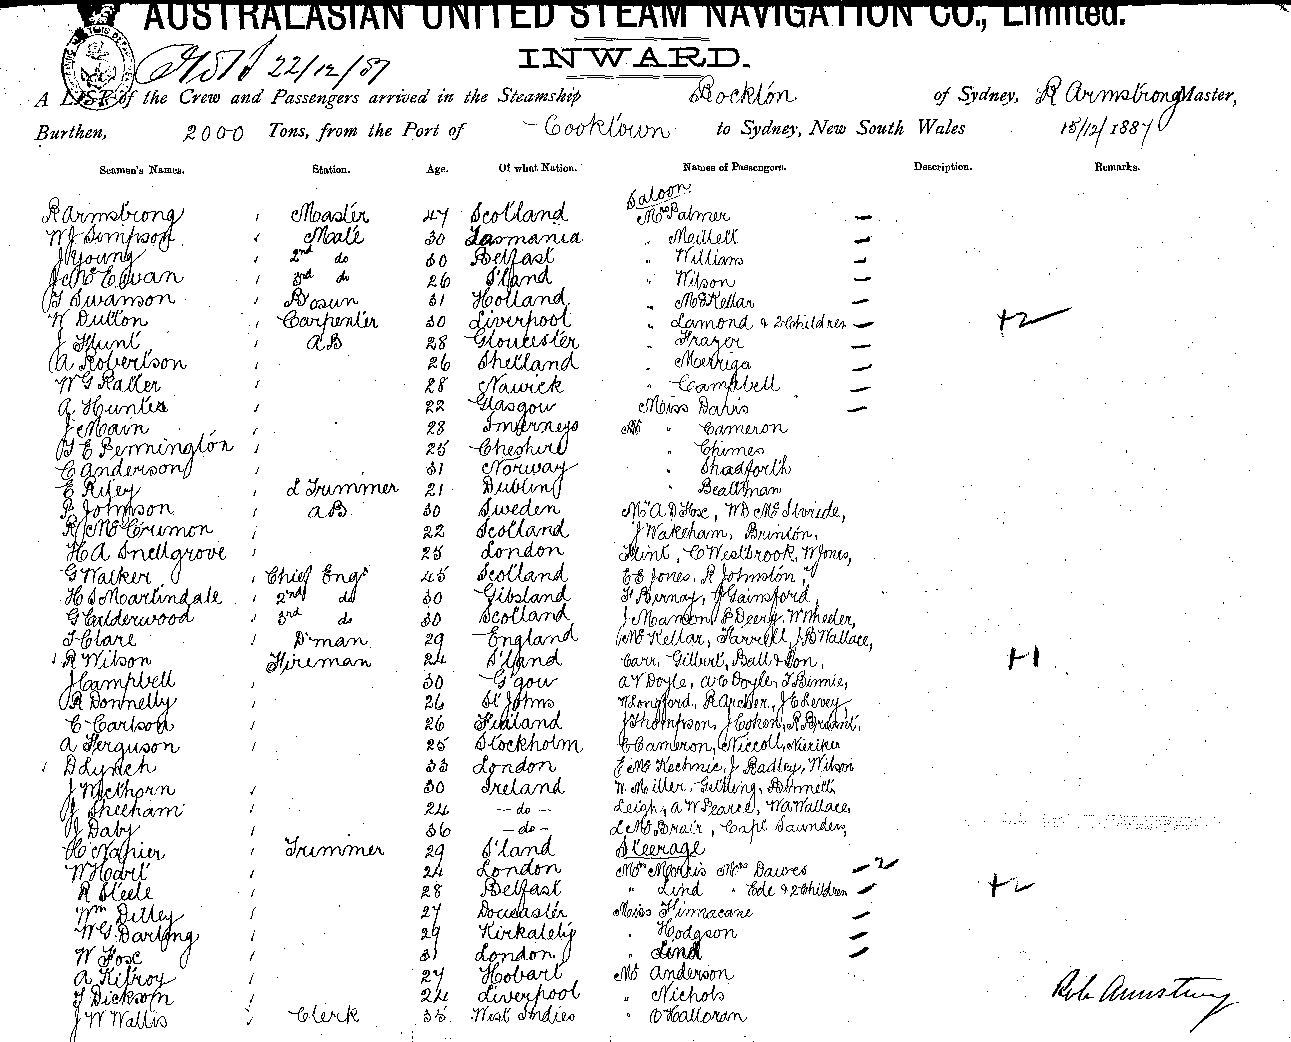 AUSTRALASIAN UNITED STEAM NAVIGATION CO., Limited.
22/12/87
INWARD.
A LIST of the Crew and Passengers arrived in the Steamship Rockton of Sydney, R Armstrong Master,
Burthen, 2000 Tons, from the Port of Cooktown to Sydney, New South Wales 18/12/1887
Seamen's Names. Station. Age. Of what Nation. Names of Passengers. Description. Remarks.
Saloon
R Armstrong Master 47 Scotland Mrs Palmer —
W J Simpson Mate 30 Tasmania " Meillett —
J Young 2nd do 30 Belfast " Williams —
J McEwan 3rd do 26 S'land " Wilson —
Swanson Bosun 31 Holland " McKellar —
W Dutton Carpenter 30 Liverpool " Lamond & 2 Children — +2
J Hunt AB 28 Gloucester " Frazer —
A Robertson 26 Shetland " Merriga —
W G Raller 28 Nawick " Campbell —
A Hunter 22 Glasgow Miss Davis —
J Main 28 Inverneys " Cameron
Bennington 25 Cheshire " Chimes
C Anderson 31 Norway " Shadforth
E Riley L Trimmer 21 Dublin " Beallman
P Johnson AB 30 Sweden Mr A D Fox,
R McCrumon 22 Scotland J Wakeham, Brinton,
H A Snellgrove 25 London Flint, C Westbrook, W Jones,
G Walker Chief Engr 45 Scotland E E Jones, R Johnston,
H S Martindale 2nd do 30 Gibsland F Bernay, J Gainsford,
G Calderwood 3rd do 30 Scotland J Mamon, P Deery, W Wheeler,
T Clare D'man 29 England McKellar, Farrell, J B Wallace,
R Wilson Fireman 24 S'land Carr, Gilbert, Ball & Son, +1
J Campbell 30 G'gow A V Doyle, A C Doyle, T Binnie,
R Donnelly 26 St Johns W Longford, R Archer, J C Levey
C Carlson 26 Finland J Thompson, J Cohen, R Bryant,
A Ferguson 25 Stockholm C Cameron, Niccoll,
D Lynch 33 London E McKechnie, J Radley, Wilson
J 30 Ireland W Miller, Gitting, Bennett,
J Sheeham 24 — do — Leigh, A W Pearce, W A Wallace,
J Daby 36 — do — L McBrair, Capt Saunders,
H Napier Trimmer 29 S'land Steerage
W Hart 24 London Mrs Morris Mrs Dawes — 2
R Steele 28 Belfast " Lind " Ede & 2 Children — +2
Wm Dilley 27 Doncaster Miss Finnacane —
W G Darling 29 Kirkalety " Hodgson —
W Fox 31 London " Lind —
A Kilroy 27 Hobart Mr Anderson
T Dickson 24 Liverpool " Nichols
J W Wallis Clerk 35 West Indies " O'Halloran
Rob Armstrong